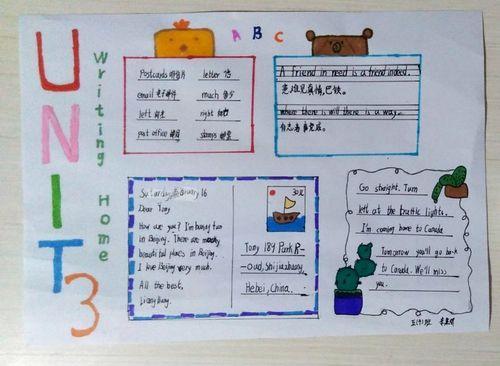 UNIT3
Writing Home
A B C
Postcards 明信片 letter 信
email 电子邮件 much 多少
left 向左 right
post office 邮局 stamps 邮票
A friend in need is a friend indeed.
患难见真情,
where there is will there is a way.
有志者事竟成。
Saturday, February 16
Dear Tony
How are you? I'm having fun
in Beijing. There are many
beautiful places in Beijing.
I love Beijing very much.
All the best,
30元
Tony 189 Park R-
oad, Shijiazhuang,
Hebei, China.
Go straight. Turn
left at the traffic lights.
I'm coming home to Canada
Tomorrow you'll go back
to Canada. We'll miss
you.